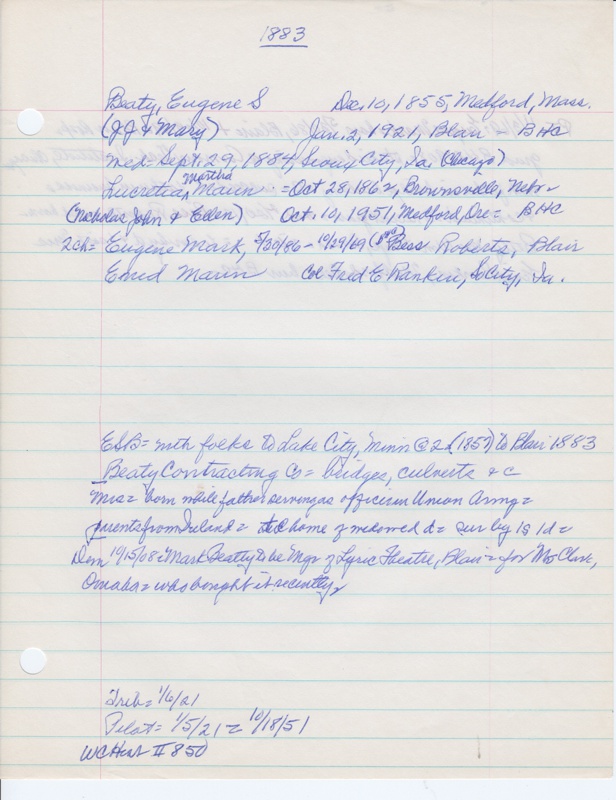 1883
Beaty, Eugene S Dec. 10, 1855, Medford, Mass.
(J J & Mary) Jan. 2, 1921, Blair - BHC
med = Sept. 29, 1884, Sioux City, Ia. (Chicago)
Martha
Lucretia, Mann = Oct 28, 1862, Brownsville, Nebr
(Nicholas John & Ellen) Oct. 10, 1951, Medford, Ore = BHC
2 ch = Eugene Mark, 5/20/86 - 10/29/69 Bess Roberts, Blair
Enid Mann Col Fred E Rankin, So City, Ia.
ESB = with folks to Lake City, Minn @ 2 (1857) to Blair 1883
Beaty Contracting Co = bridges, culverts & c
Mrs = born while father serving as officer in Union Army =
parents from Ireland = home of d = sur by 1s 1d =
Dem 1915/08 = Mark Beatty to be Mgr of Lyric Theatre, Blair = for Mr Clark,
Omaha = who bought it recently
Trib = 1/6/21
Pilot = 1/5/21 = 10/18/51
WCHist II # 850